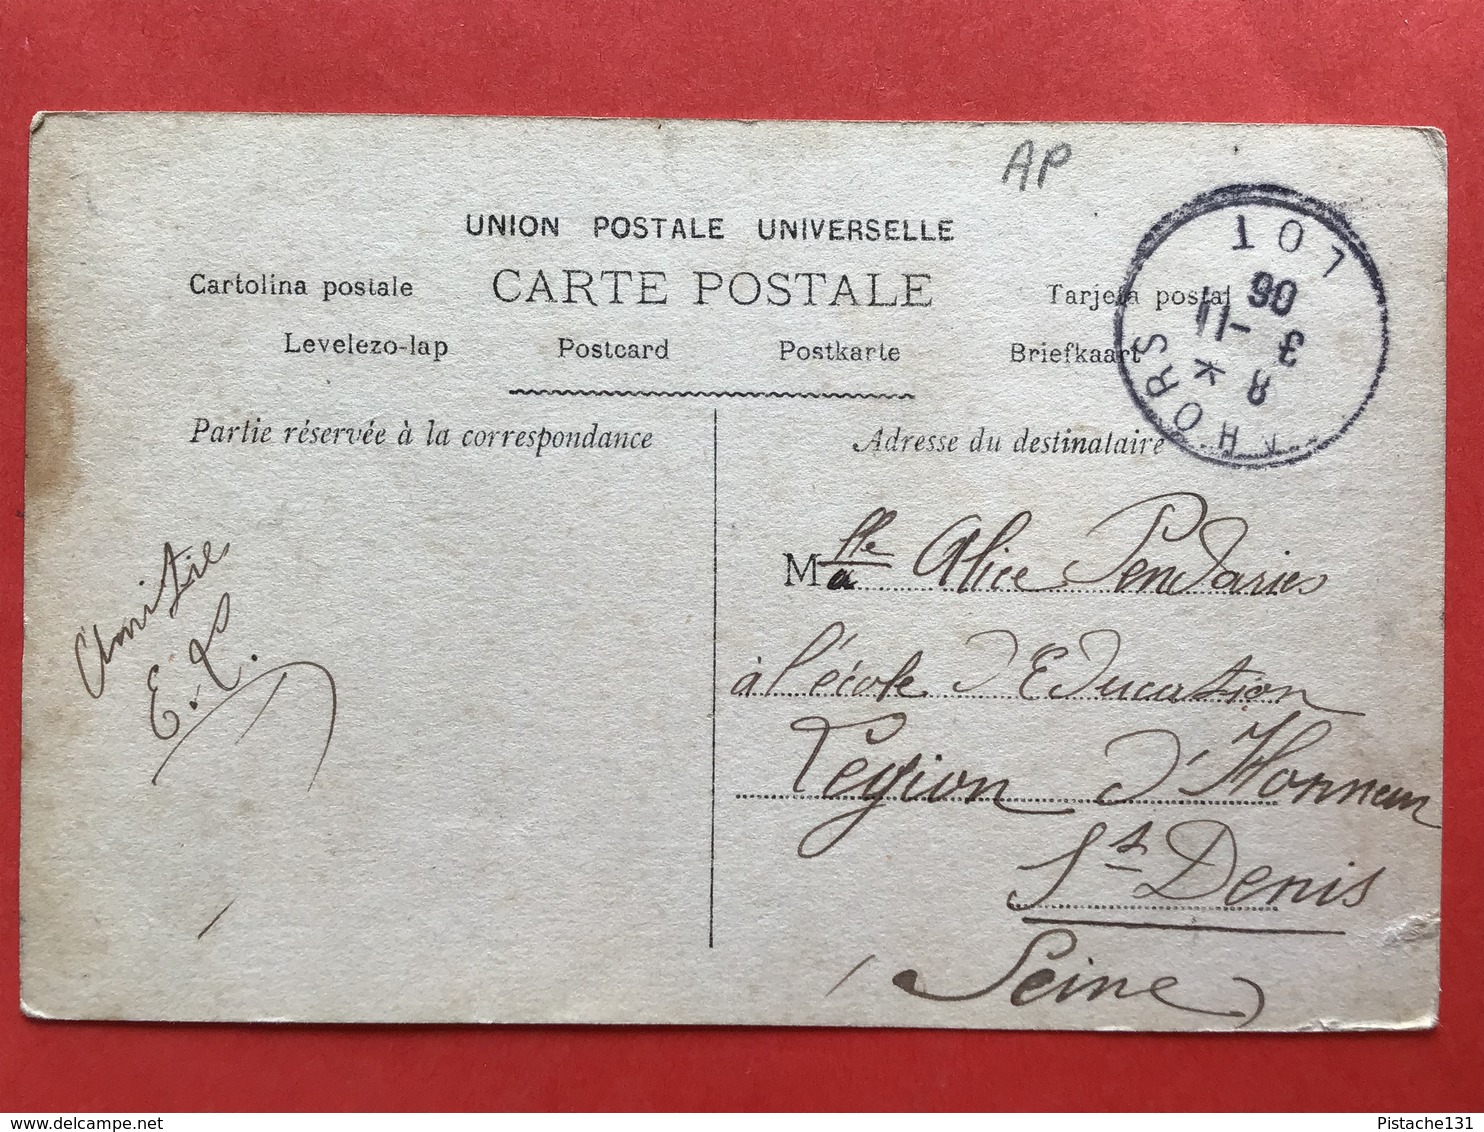 AP
UNION POSTALE UNIVERSELLE
Cartolina postale CARTE POSTALE Tarjeta postal
Levelezo-lap Postcard Postkarte Briefkaart
Partie réservée à la correspondance
Adresse du destinataire
LOT
06
11-3
8
HORS
Amitié
E. L.
Mlle Alice Pendaries
à l'école d'Education
Légion d'Honneur
St Denis
(Seine)
Pistache131